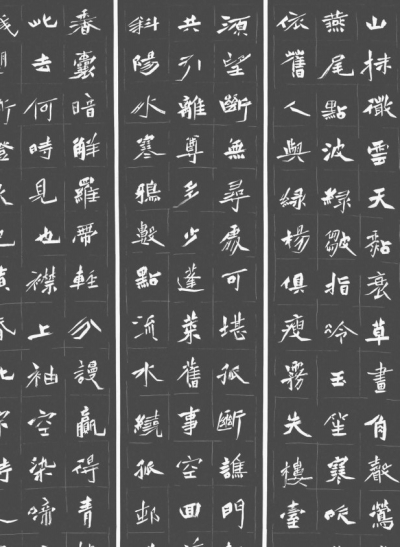 山抹微雲天黏衰草畫角聲鶯
燕尾點波綠皺指冷玉笙寒吹
依舊人與綠楊俱瘦霧失樓臺
源望斷無尋處可堪孤斷譙門
共引離尊多少蓬萊舊事空回
斜陽外寒鴉數點流水繞孤邨
香囊暗解羅帶輕分謾贏得青
此去何時見也襟上袖空染啼